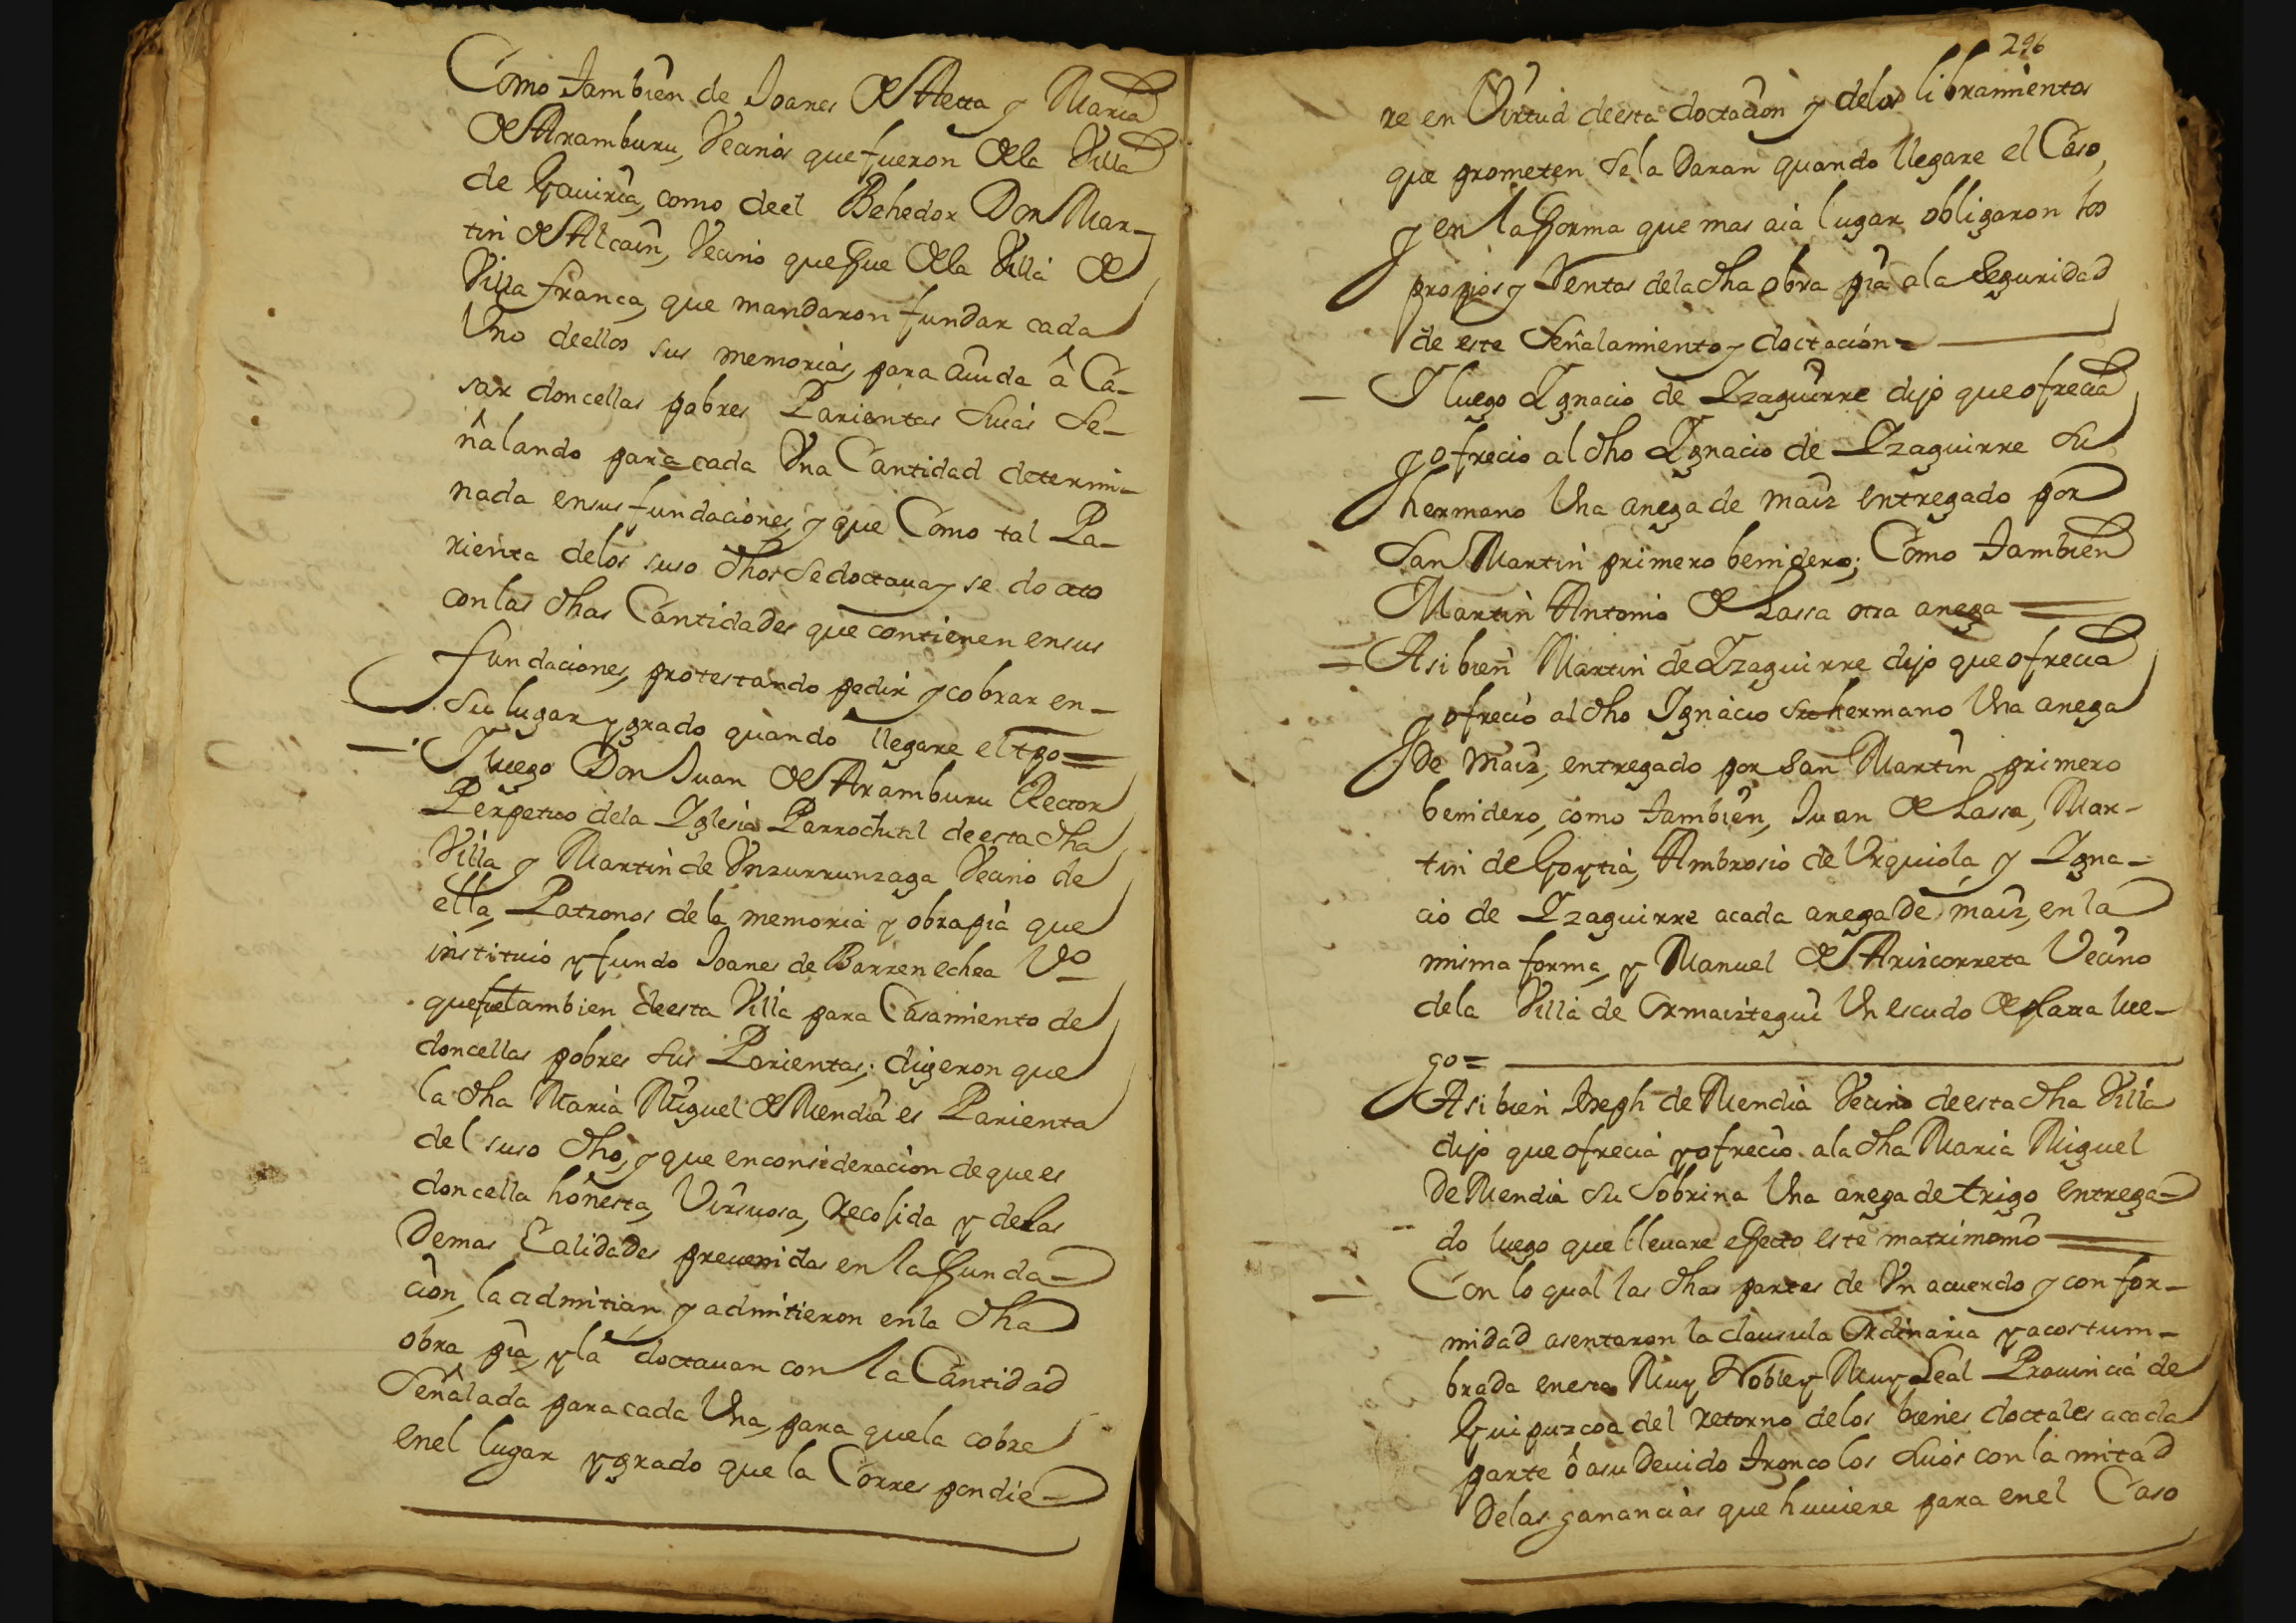 Como tambien de Joanes de Aletta y Maria
de Aramburu, Vecinos que fueron de la Villa
de Gauiria, como de el Behedor Don Mar-
tin de Alcain, Vecino que fue de la Villa de
Villa franca, que mandaron fundar cada
Uno de ellos sus memorias, para aiuda â Ca-
sar doncellas pobres Parientas suias Se-
ñalando para cada Una Cantidad determi-
nada en sus fundaciones, y que Como tal Pa-
rienta de los suso dhos se doctaua y se docto
con las dhas Cantidades que contienen en sus
fundaciones, protestando pedir y cobrar en-
Su lugar y grado quando llegare el tpo=
Y luego Don Juan de Aramburu Rector
Perpetuo de la Yglesia Parrochial de esta dha
Villa y Martin de Vnzurrunzaga Vecino de
ella, Patronos de la memoria y obra pia que
instituio y fundo Joanes de Barrenechea Vº
que fue tambien de esta Villa para Casamiento de
doncellas pobres sus Parientas; digeron que
la dha Maria Miguel de Mendia es Parienta
del suso dho, y que en consideracion de que es
doncella honesta, Virtuosa, recojida y de las
Demas Calidades preuenidas en la funda-
cion, la admitian y admitieron en la dha
obra pia, y la doctauan con la Cantidad
Señalada para cada Una, para que la cobre
en el lugar y grado que la Correspondie-
296
re en Virtud de esta doctacion y de los libramientos
que prometen se la Daran quando llegare el Caso,
y en la forma que mas aia lugar obligaron los
propios y Rentas de la dha obra pia a la Seguridad
de este Señalamiento y doctacion=
Y luego Ygnacio de Yzaguirre dijo que ofrecia
y ofrecio al dho Ygnacio de Yzaguirre Su
hermano Una anega de maiz entregado por
San Martin primero benidero; Como tambien
Martin Antonio de Lassa otra anega
Asi bien Martin de Yzaguirre dijo que ofrecia
y ofrecio al dho Ygnacio su hermano Una anega
De Maiz, entregado por San Martin primero
benidero, como tambien, Juan de Lassa, Mar-
tin de Goytia, Ambrosio de Vrquiola, y Ygna-
cio de Yzaguirre a cada anega De maiz, en la
misma forma, y Manuel de Arizcorreta Vecino
de la Villa de Ormaiztegui Un escudo de plata lue-
go=
Asi bien Joseph de Mendia Vecino de esta dha Villa
dijo que ofrecia y ofrecio a la dha Maria Miguel
De Mendia su Sobrina Una anega de trigo entrega-
do luego que lleuare effecto este matrimonio
Con lo qual las dhas partes de Vn acuerdo y confor-
midad asentaron la clausula Ordinaria y acostum-
brada en esta Muy Noble y Muy Leal Prouincia de
Guipuzcoa del retorno de los bienes doctales a cada
parte ô a su Deuido tronco los suios con la mitad
De las ganancias que huuiere para en el Caso